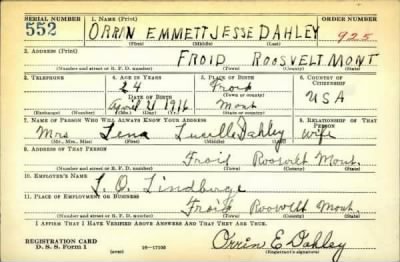 SERIAL NUMBER 1. NAME (Print) ORDER NUMBER
552 ORRIN EMMETT JESSE DAHLEY 925
(First) (Middle) (Last)
2. ADDRESS (Print)
FROID ROOSVELT MONT
(Number and street or R. F. D. number) (Town) (County) (State)
3. TELEPHONE 4. AGE IN YEARS 5. PLACE OF BIRTH 6. COUNTRY OF CITIZENSHIP
24 Froid
DATE OF BIRTH (Town or county) USA
April 21 1916 Mont
(Exchange) (No.) (Mo.) (Day) (Yr.) (State or country)
7. NAME OF PERSON WHO WILL ALWAYS KNOW YOUR ADDRESS 8. RELATIONSHIP OF THAT PERSON
Mrs Lena Lucille Dahley wife
(Mr., Mrs., Miss) (First) (Middle) (Last)
9. ADDRESS OF THAT PERSON
Froid Roosvelt Mont.
(Number and street or R. F. D. number) (Town) (County) (State)
10. EMPLOYER'S NAME
Lindberge
11. PLACE OF EMPLOYMENT OR BUSINESS
Froid Roosvelt Mont.
(Number and street or R. F. D. number) (Town) (County) (State)
I AFFIRM THAT I HAVE VERIFIED ABOVE ANSWERS AND THAT THEY ARE TRUE.
REGISTRATION CARD
D. S. S. Form 1 (over) 16—17105 Orrin E Dahley
(Registrant's signature)